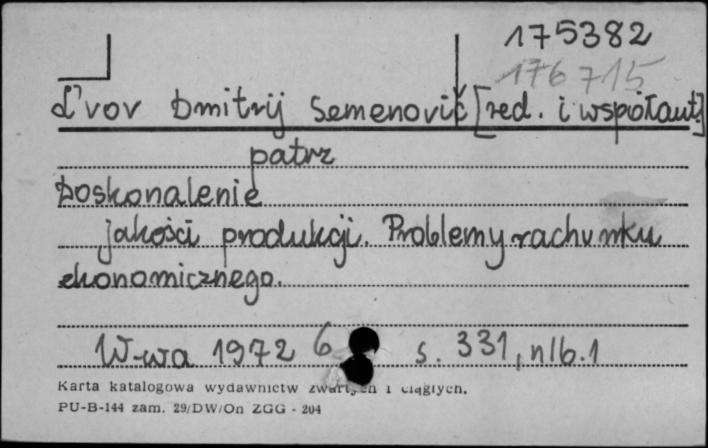 175382
176715
L'vov Dmitrij Semenovič [red. i współaut]
patrz
Doskonalenie
jakości produkcji. Problemy rachunku
ekonomicznego.
W-wa 1972 6 s. 331, nlb. 1
Karta katalogowa wydawnictw zwartych i ciągłych.
PU-B-144 zam. 29/DW/On ZGG - 204